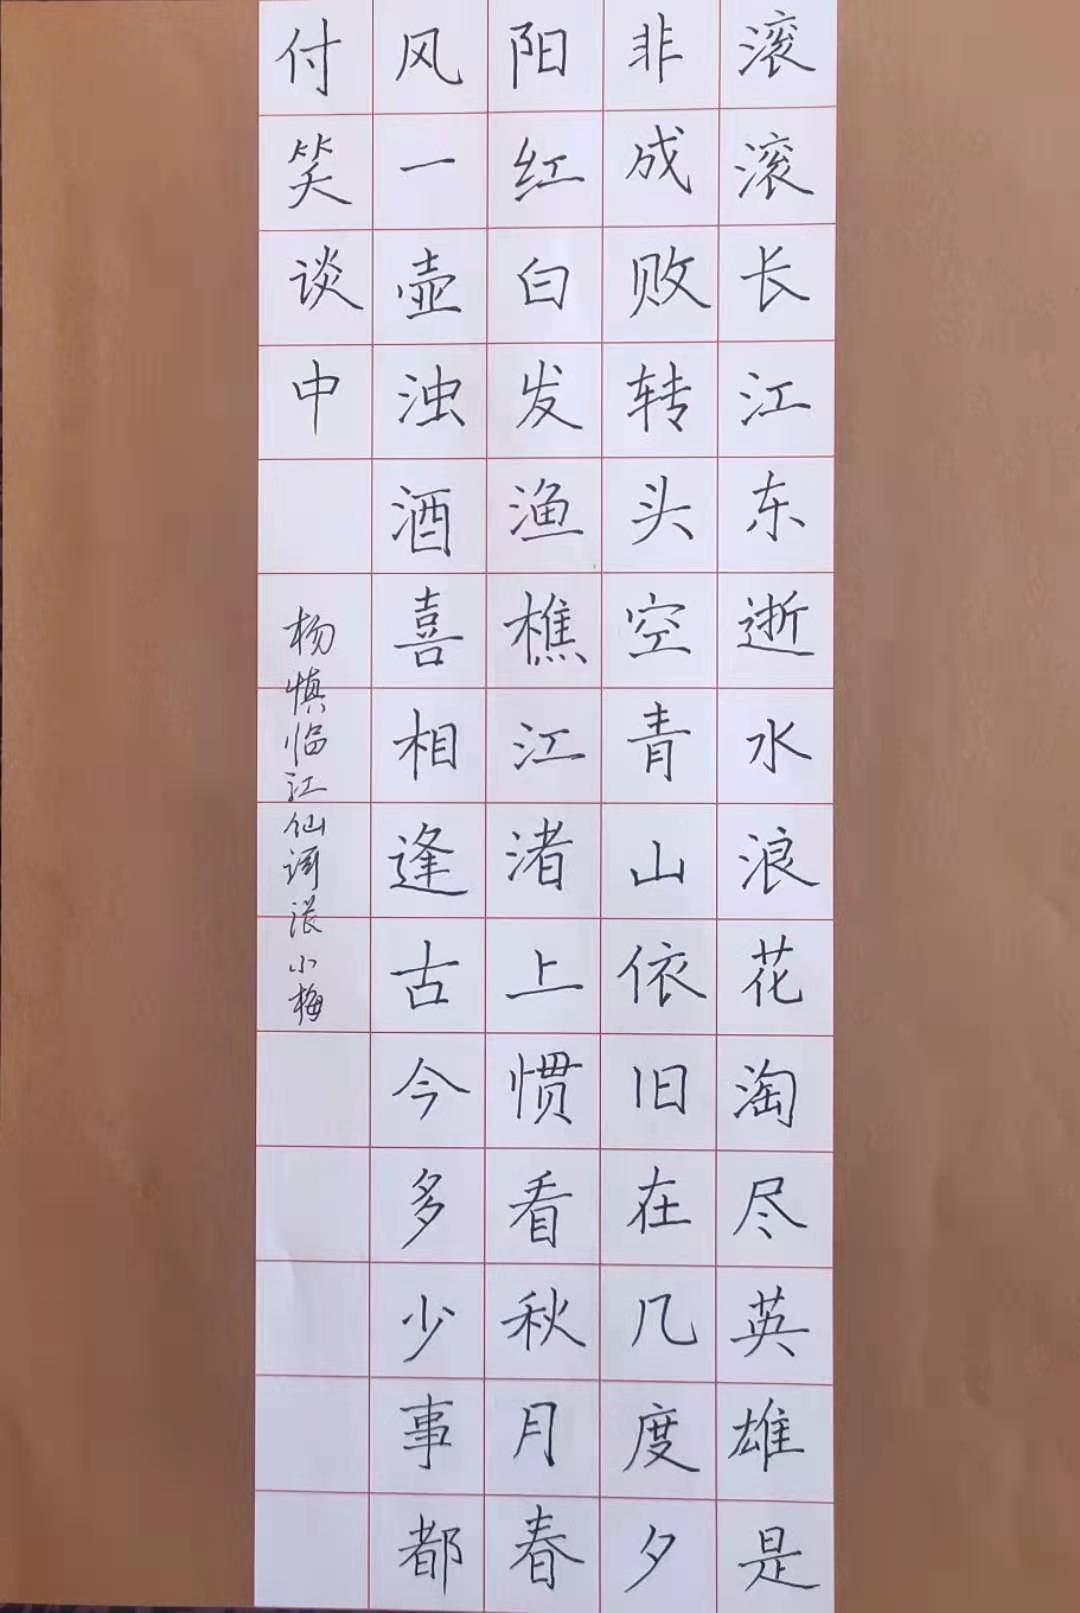 滚滚长江东逝水浪花淘尽英雄是
非成败转头空青山依旧在几度夕
阳红白发渔樵江渚上惯看秋月春
风一壶浊酒喜相逢古今多少事都
付笑谈中
杨慎临江仙词张小梅